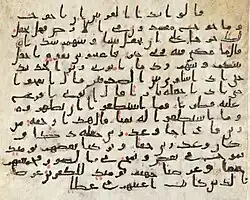 قالوا يذا القرنين ان ياجوج
وماجوج مفسدون في الارض فهل نجعل
لك خرجا على ان تجعل بيننا وبينهم سدا
قال ما مكني فيه ربي خير فاعينوني بقوة اجعل
بينكم وبينهم ردما اتوني زبر الحديد
حتى اذا ساوى بين الصدفين قال انفخوا
حتى اذا جعله نارا قال اتوني افرغ
عليه قطرا فما اسطعوا ان يظهروه
وما استطعوا له نقبا قال هذا رحمة من
ربي فاذا جا وعد ربي جعله دكا و
كان وعد ربي حقا وتركنا بعضهم يومئذ
يموج في بعض ونفخ في الصور فجمعنهم
جمعا وعرضنا جهنم يومئذ للكفرين عرضا
الذين كانت اعينهم في غطا